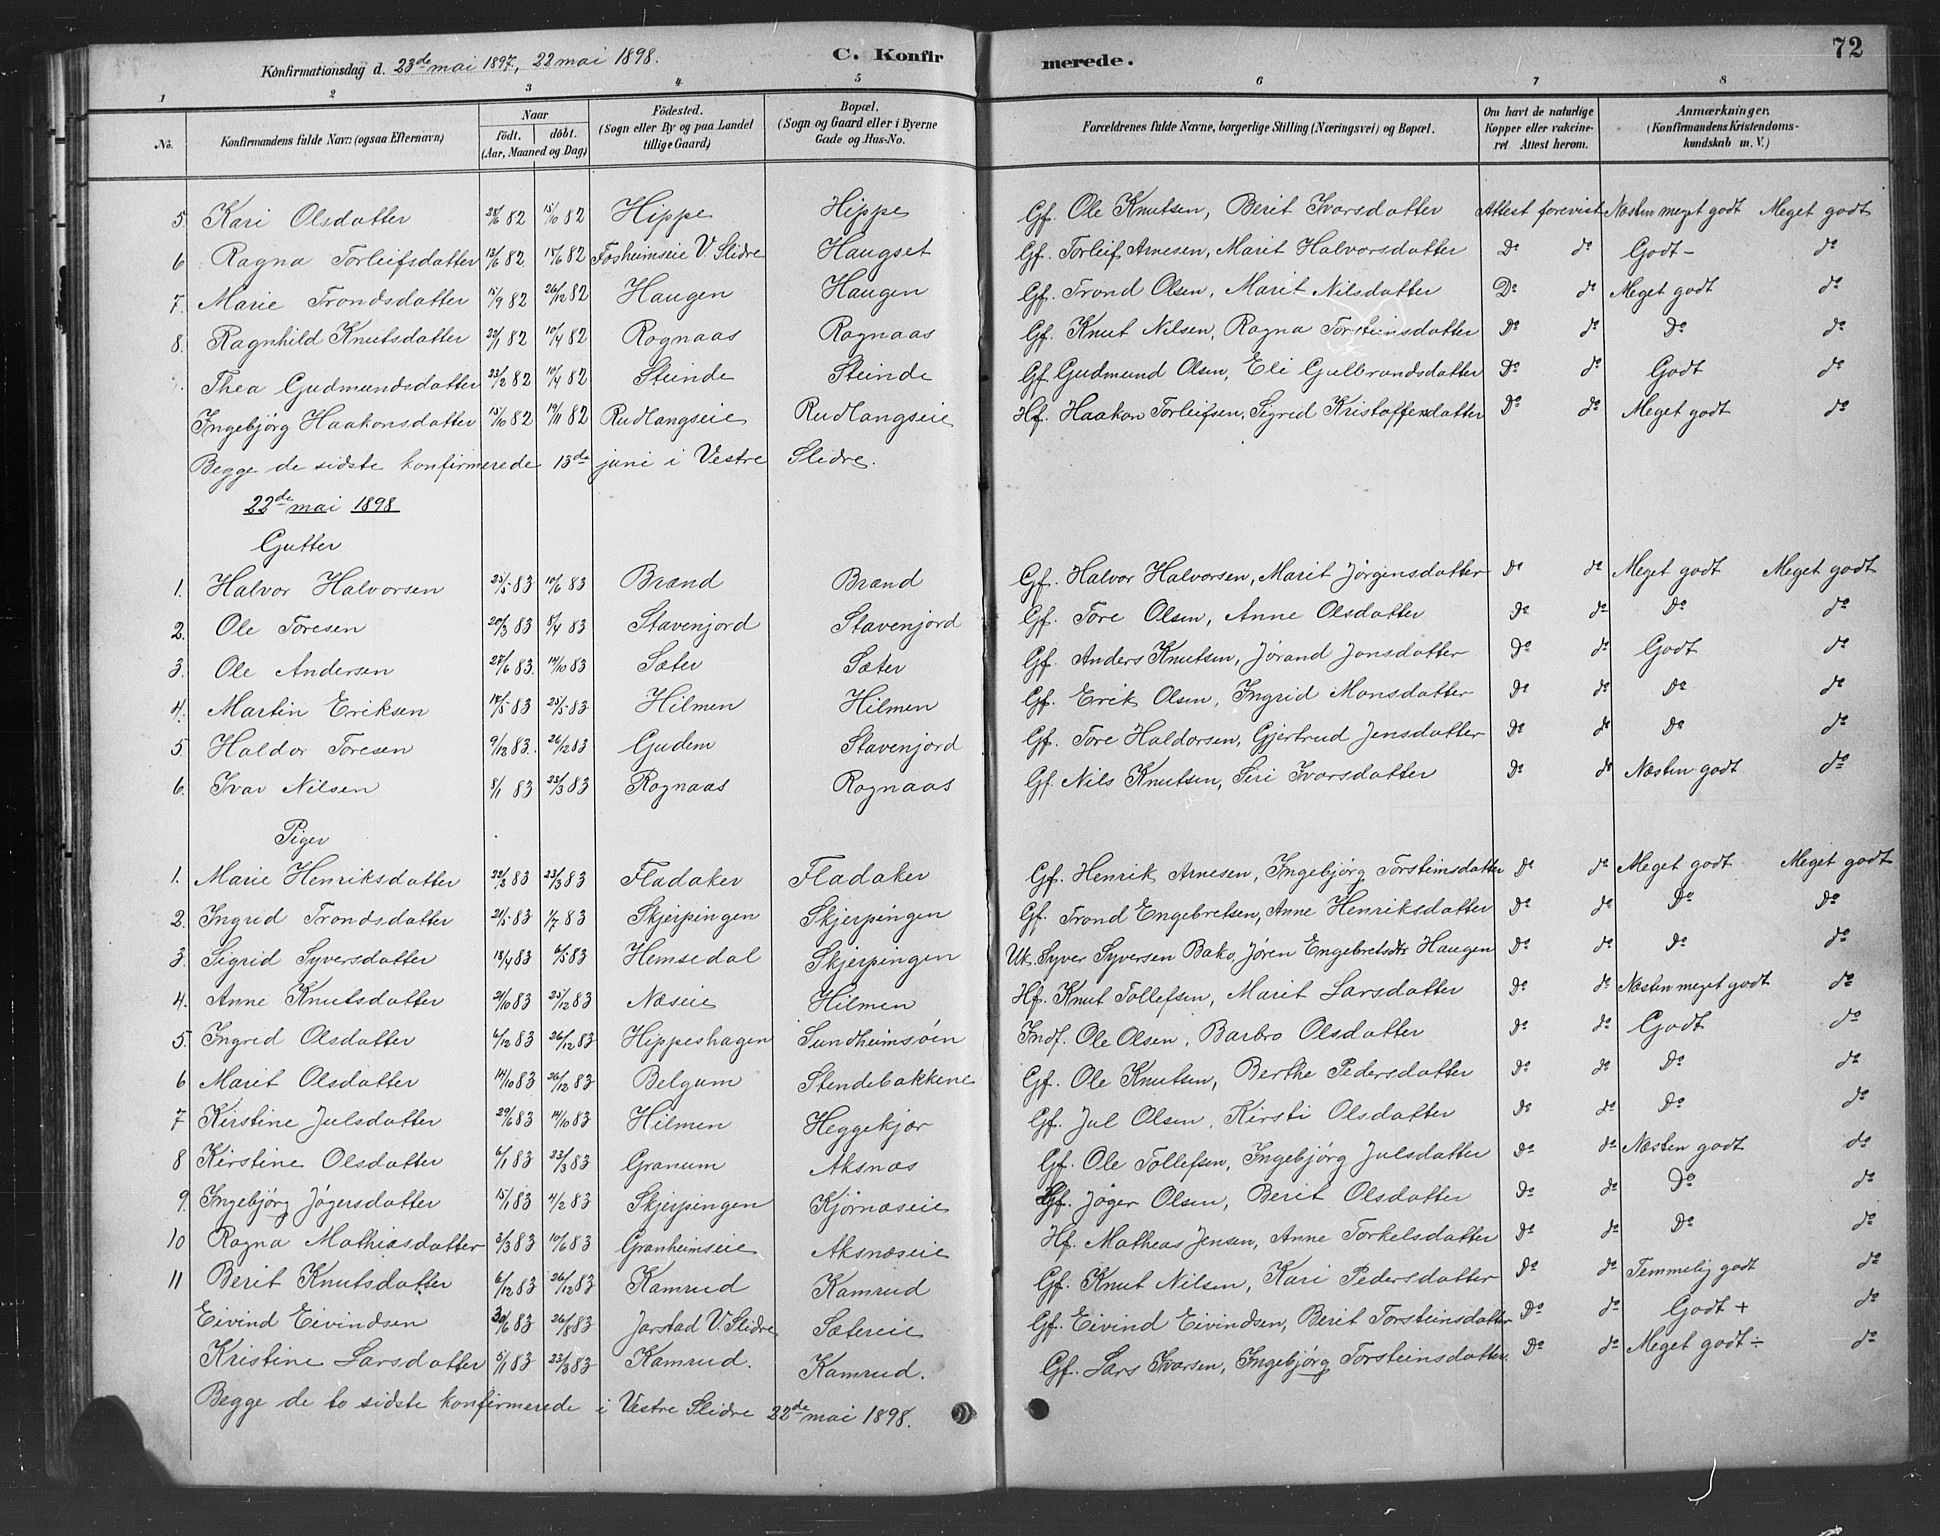 72
Konfirmationsdag d. 23de mai 1897, 22 mai 1898. C. Konfirmerede.
1 2 3 4 5 6 7 8
No. Konfirmandens fulde Navn (ogsaa Efternavn) Naar födt. döbt. (Aar, Maaned og Dag) Födested. (Sogn eller By og paa Landet tillige Gaard) Bopæl. (Sogn og Gaard eller i Byerne Gade og Hus-No. Forældrenes fulde Navne, borgerlige Stilling (Næringsvei) og Bopæl. Om havt de naturlige Kopper eller vakcineret. Attest herom. Anmærkninger, (Konfirmandens Kristendomskundskab m. V.)
5. Kari Olsdatter 28/6 82 15/10 82 Hippe Hippe Gf. Ole Knutsen, Berit Ivarsdatter Attest forevist Næsten meget godt Meget godt
6 Ragna Torleifsdatter 12/6 82. 18/6 82 Fosheimseie V. Slidre Haugset Gf. Torleif Arnesen, Marit Halvorsdatter Do do Godt - do
7. Marie Trondsdatter 15/9 82 26/12 82 Haugen Haugen Gf. Trond Olsen, Marit Nilsdatter Do do Meget godt do
8. Ragnhild Knutsdatter 22/1 82 10/4 82 Rognaas Rognaas Gf. Knut Nilsen, Ragna Torsteinsdatter Do do Do do
Thea Gudmundsdatter 23/2 82 10/4 82 Steinde Steinde Gf. Gudmund Olsen, Eli Gulbrandsdatter Do do Godt do
Ingebjörg Haakonsdatter 15/10 82 19/11 82 Rudlangseie Rudlangseie Hf. Haakon Torleifsen, Sigrid Kristoffersdatter Do do Meget godt do
Begge de sidste konfirmerede 13de juni i Vestre Slidre.
22de mai 1898
Gutter
1. Halvor Halvorsen 25/5 83 10/6 83 Brænd Brænd Gf. Halvor Halvorsen, Marit Jörgensdatter do do Meget godt Meget godt
2. Ole Toresen 20/3 83 8/4 83 Stavenjord Stavenjord Gf. Tore Olsen, Anne Olsdatter do do Do do
3. Ole Andersen 27/6 83. 14/10 83 Sæter Sæter Gf. Anders Knutsen, Jörand Jonsdatter Do do Godt do
4. Martin Eriksen 17/5 83 25/5 83 Hilmen Hilmen Gf. Erik Olsen, Ingrid Monsdatter do do Do do
5 Haldor Toresen 9/12 83. 26/12 83 Gudem Stavenjord Gf. Tore Haldorsen, Gjertrud Jensdatter do do Do do
6. Ivar Nilsen 8/1 83 23/3 83 Rognaas Rognaas Gf. Nils Knutsen, Siri Ivarsdatter do do Næsten godt do
Piger
1. Marie Henriksdatter 22/2 83 23/3 83 Fladaker Fladaker Gf. Henrik Arnesen, Ingebjörg Torsteinsdatter do do Meget godt Meget godt
2. Ingrid Trondsdatter 21/5 83 1/7 83 Skjerpingen Skjerpingen Gf. Trond Engebretsen, Anne Henriksdatter do do Do do
3. Sigrid Syversdatter 18/4 83 6/5 83 Hemsedal Skjerpingen Uk. Syver Syversen Bako, Jören Engebretsdtr Haugen do do do do
4. Anne Knutsdatter 21/10 83 25/12 83 Næseie Hilmen Hf. Knut Tollefsen, Marit Larsdatter do do Næsten meget godt do
5. Ingrid Olsdatter 6/12 83 26/12 83 Hippeshagen Sundheimsöen Indf. Ole Olsen, Barbro Olsdatter do do Godt do
6 Marit Olsdatter 14/10 83 26/12 83 Belgum Stendebakkene Gf. Ole Knutsen, Berthe Pedersdatter do do Do do
7 Kirstine Julsdatter 29/6 83 14/10 83 Hilmen Heggekjær Gf. Jul Olsen, Kirsti Olsdatter do do Do do
8 Kirstine Olsdatter 6/1 83 23/3 83 Granum Aksnæs Gf. Ole Tollefsen, Ingebjörg Julsdatter do do Næsten godt do
9. Ingebjörg Jögersdatter 15/1 83 4/2 83 Skjerpingen Kjörnæseie Gf. Jöger Olsen, Berit Olsdatter do do Do do
10 Ragna Mathiasdatter 3/3 83 10/6 83 Granheimseie Aksnæseie Hf. Matheas Jensen, Anne Torkelsdatter do do Do do
11 Berit Knutsdatter 6/12 83 26/12 83 Kamrud Kamrud Gf. Knut Nilsen, Kari Pedersdatter do do Temmelig godt do
Eivind Eivindsen 30/6 83 26/8 83 Jarstad V. Slidre Sætereie Gf. Eivind Eivindsen, Berit Torsteinsdatter do do Godt + do
Kristine Larsdatter 5/1 83 23/3 83 Kamrud. Kamrud. Gf. Lars Ivarsen, Ingebjörg Torsteinsdatter. Do do Meget godt ÷ do
Begge de to sidste konfirmerede i Vestre Slidre 22de mai 1898.